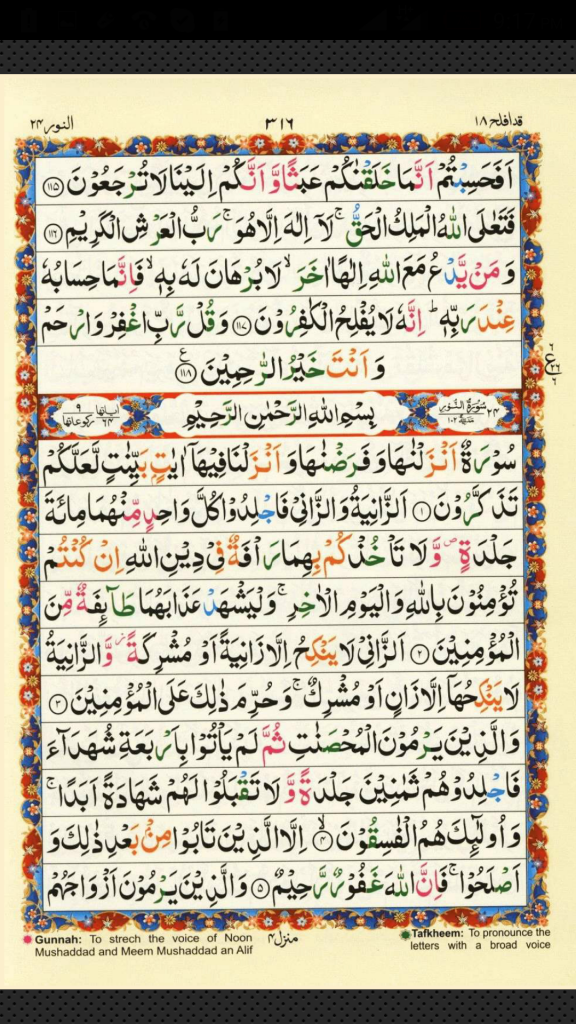 قد افلح ١٨
٣١٦
النور ٢٤
اَفَحَسِبْتُمْ اَنَّمَا خَلَقْنٰكُمْ عَبَثًا وَّ اَنَّكُمْ اِلَيْنَا لَا تُرْجَعُوْنَ ﴿١١٥﴾
فَتَعٰلَى اللّٰهُ الْمَلِكُ الْحَقُّ ۚ لَاۤ اِلٰهَ اِلَّا هُوَ ۚ رَبُّ الْعَرْشِ الْكَرِيْمِ ﴿١١٦﴾
وَ مَنْ يَّدْعُ مَعَ اللّٰهِ اِلٰهًا اٰخَرَ ۙ لَا بُرْهَانَ لَهٗ بِهٖ ۙ فَاِنَّمَا حِسَابُهٗ
عِنْدَ رَبِّهٖ ؕ اِنَّهٗ لَا يُفْلِحُ الْكٰفِرُوْنَ ﴿١١٧﴾ وَ قُلْ رَّبِّ اغْفِرْ وَ ارْحَمْ
وَ اَنْتَ خَيْرُ الرّٰحِمِيْنَ ﴿١١٨﴾
٢٤ سُوْرَةُ النُّوْرِ مَدَنِيَّةٌ ١٠٢
بِسْمِ اللّٰهِ الرَّحْمٰنِ الرَّحِيْمِ
اٰيَاتُهَا ٦٤ رُكُوْعَاتُهَا ٩
سُوْرَةٌ اَنْزَلْنٰهَا وَ فَرَضْنٰهَا وَ اَنْزَلْنَا فِيْهَاۤ اٰيٰتٍۭ بَيِّنٰتٍ لَّعَلَّكُمْ
تَذَكَّرُوْنَ ﴿١﴾ اَلزَّانِيَةُ وَ الزَّانِيْ فَاجْلِدُوْا كُلَّ وَاحِدٍ مِّنْهُمَا مِائَةَ
جَلْدَةٍ ۪ وَّ لَا تَاْخُذْكُمْ بِهِمَا رَاْفَةٌ فِيْ دِيْنِ اللّٰهِ اِنْ كُنْتُمْ
تُؤْمِنُوْنَ بِاللّٰهِ وَ الْيَوْمِ الْاٰخِرِ ۚ وَ لْيَشْهَدْ عَذَابَهُمَا طَآئِفَةٌ مِّنَ
الْمُؤْمِنِيْنَ ﴿٢﴾ اَلزَّانِيْ لَا يَنْكِحُ اِلَّا زَانِيَةً اَوْ مُشْرِكَةً ؗ وَّ الزَّانِيَةُ
لَا يَنْكِحُهَاۤ اِلَّا زَانٍ اَوْ مُشْرِكٌ ۚ وَ حُرِّمَ ذٰلِكَ عَلَى الْمُؤْمِنِيْنَ ﴿٣﴾
وَ الَّذِيْنَ يَرْمُوْنَ الْمُحْصَنٰتِ ثُمَّ لَمْ يَاْتُوْا بِاَرْبَعَةِ شُهَدَآءَ
فَاجْلِدُوْهُمْ ثَمٰنِيْنَ جَلْدَةً وَّ لَا تَقْبَلُوْا لَهُمْ شَهَادَةً اَبَدًا ۚ
وَ اُولٰٓئِكَ هُمُ الْفٰسِقُوْنَ ﴿٤﴾ اِلَّا الَّذِيْنَ تَابُوْا مِنْۢ بَعْدِ ذٰلِكَ وَ
اَصْلَحُوْا ۚ فَاِنَّ اللّٰهَ غَفُوْرٌ رَّحِيْمٌ ﴿٥﴾ وَ الَّذِيْنَ يَرْمُوْنَ اَزْوَاجَهُمْ
منزل ٤
Gunnah: To strech the voice of Noon
Mushaddad and Meem Mushaddad an Alif
Tafkheem: To pronounce the
letters with a broad voice